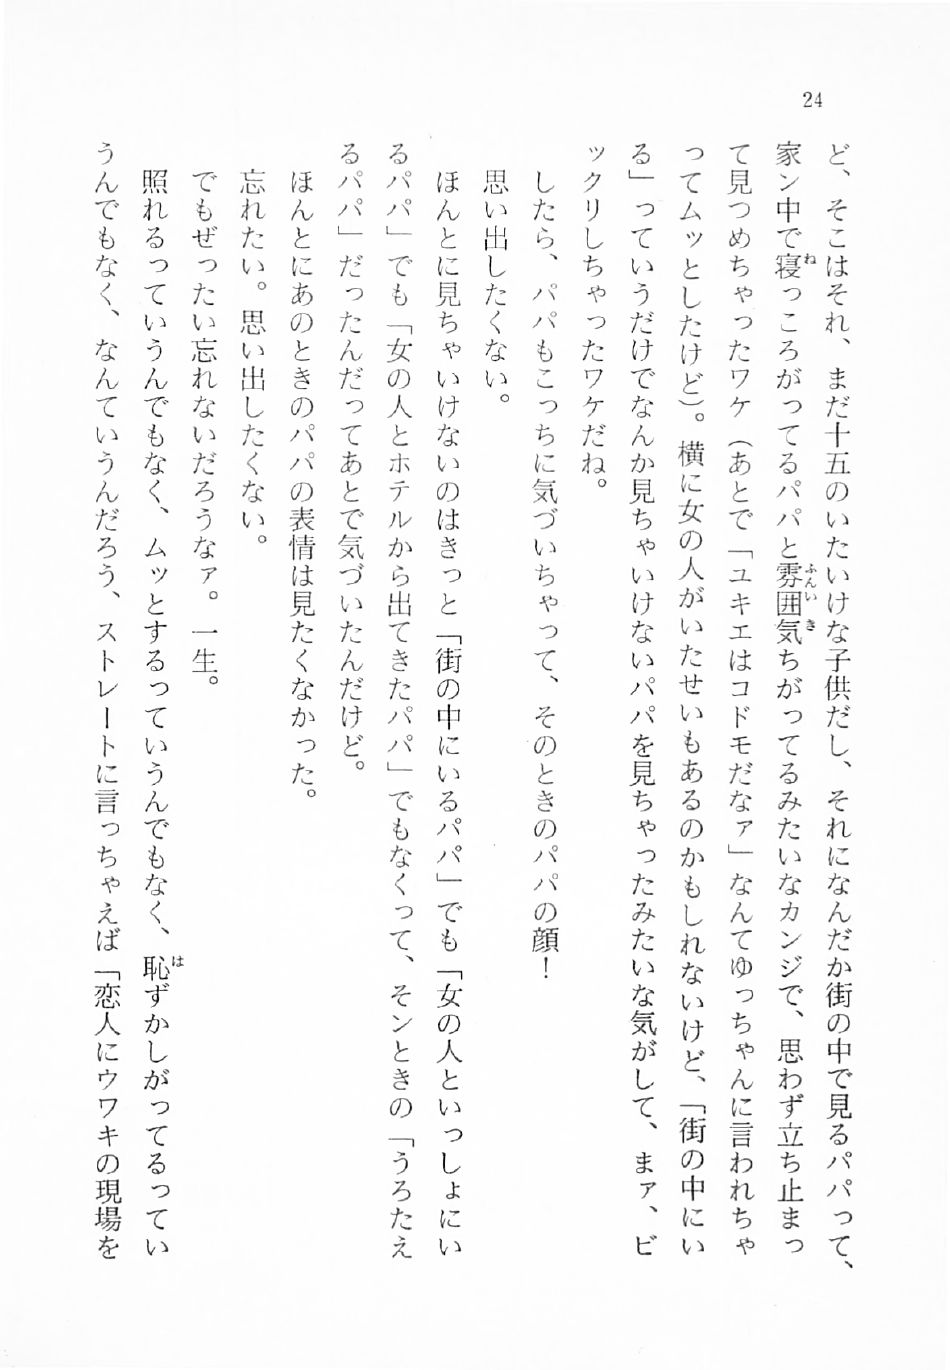 24
ど、そこはそれ、まだ十五のいたいけな子供だし、それになんだか街の中で見るパパって、
家ン中で寝っころがってるパパと雰囲気ちがってるみたいなカンジで、思わず立ち止まっ
て見つめちゃったワケ（あとで「ユキエはコドモだなァ」なんてゆっちゃんに言われちゃ
ってムッとしたけど）。横に女の人がいたせいもあるのかもしれないけど、「街の中にい
る」っていうだけでなんか見ちゃいけないパパを見ちゃったみたいな気がして、まァ、ビ
ックリしちゃったワケだね。
したら、パパもこっちに気づいちゃって、そのときのパパの顔！
思い出したくない。
ほんとに見ちゃいけないのはきっと「街の中にいるパパ」でも「女の人といっしょにい
るパパ」でも「女の人とホテルから出てきたパパ」でもなくって、そンときの「うろたえ
るパパ」だったんだってあとで気づいたんだけど。
ほんとにあのときのパパの表情は見たくなかった。
忘れたい。思い出したくない。
でもぜったい忘れないだろうなァ。一生。
照れるっていうんでもなく、ムッとするっていうんでもなく、恥ずかしがってるってい
うんでもなく、なんていうんだろう、ストレートに言っちゃえば「恋人にウワキの現場を